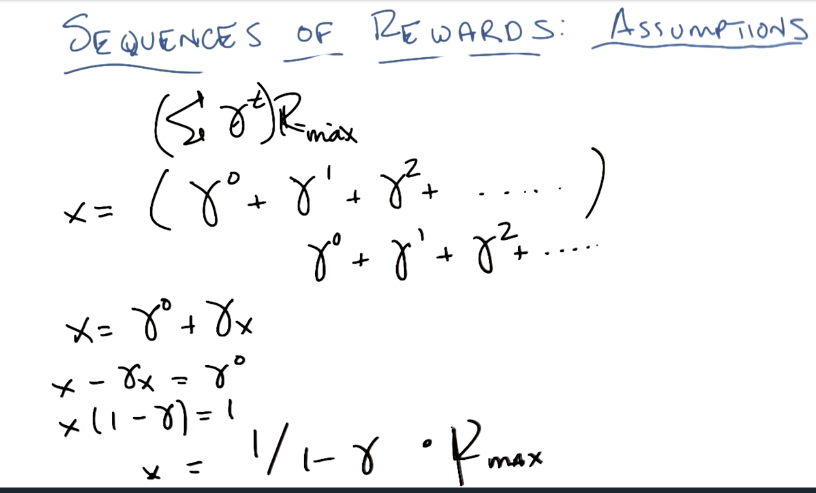 SEQUENCES OF REWARDS: ASSUMPTIONS
(Σ γ^t) R_max
x = ( γ^0 + γ^1 + γ^2 + ..... )
γ^0 + γ^1 + γ^2 + .....
x = γ^0 + γx
x - γx = γ^0
x(1 - γ) = 1
x = 1/1-γ · R_max